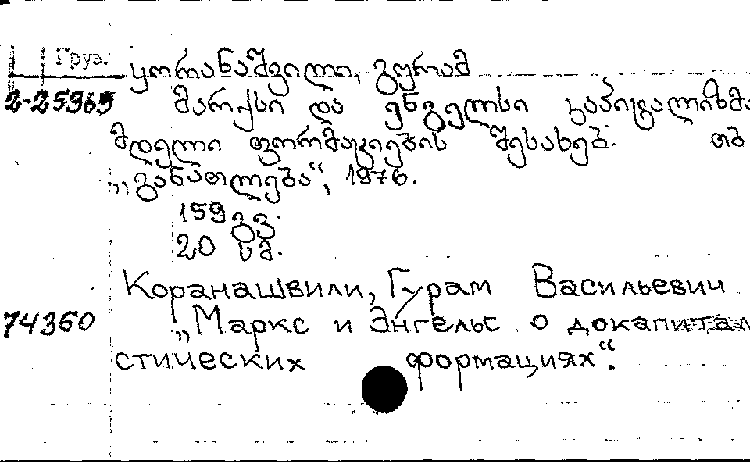 Груз.
ყორანაშვილი, გურამ
2-25965 მარქსი და ენგელსი კაპიტალიზმა
მდელი ფორმაციების შესახებ. თბ
„განათლება“, 1976.
159 გვ.
20 სმ.
Коранашвили, Гурам Васильевич
74360 „Маркс и Энгельс о докапитал
стических формациях“.